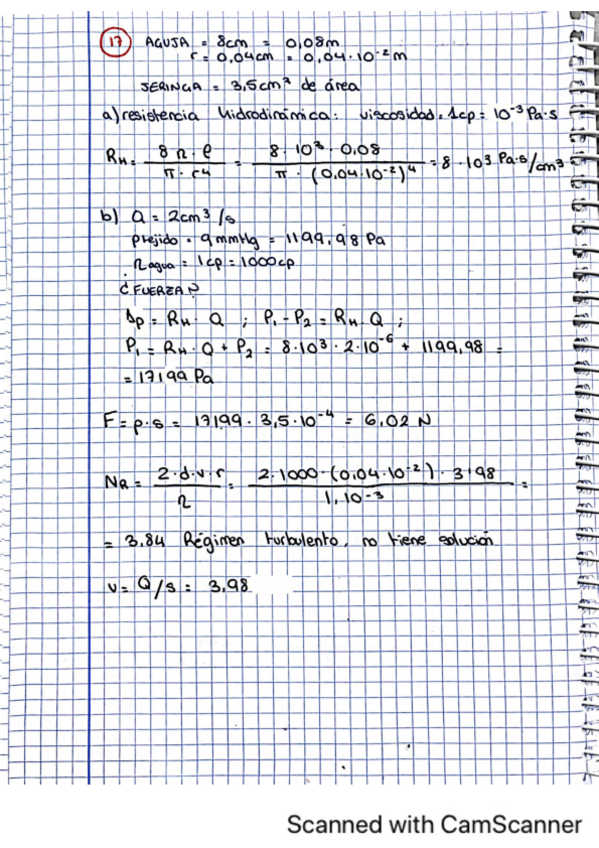 17 AGUJA = 8cm = 0,08m
r = 0,04cm = 0,04·10⁻²m
JERINGA = 3,5cm² de área
a) resistencia hidrodinámica: viscosidad = 1cp = 10⁻³ Pa·s
R_H = 8·η·l / π·r⁴ = 8·10³·0,08 / π·(0,04·10⁻²)⁴ = 8·10³ Pa·s/cm³
b) Q = 2cm³/s
Ptejido = 9mmHg = 1199,98 Pa
η agua = 1cp = 1000cp
¿FUERZA?
Δp = R_H · Q ; P₁ - P₂ = R_H · Q ;
P₁ = R_H · Q + P₂ = 8·10³ · 2·10⁻⁶ + 1199,98 =
= 17199 Pa
F = p·s = 17199 · 3,5·10⁻⁴ = 6,02 N
N_R = 2·d·v·r / η = 2·1000·(0,04·10⁻²)·3,98 / 1,10⁻³ =
= 3,84 Régimen turbulento, no tiene solución
v = Q/s = 3,98
Scanned with CamScanner